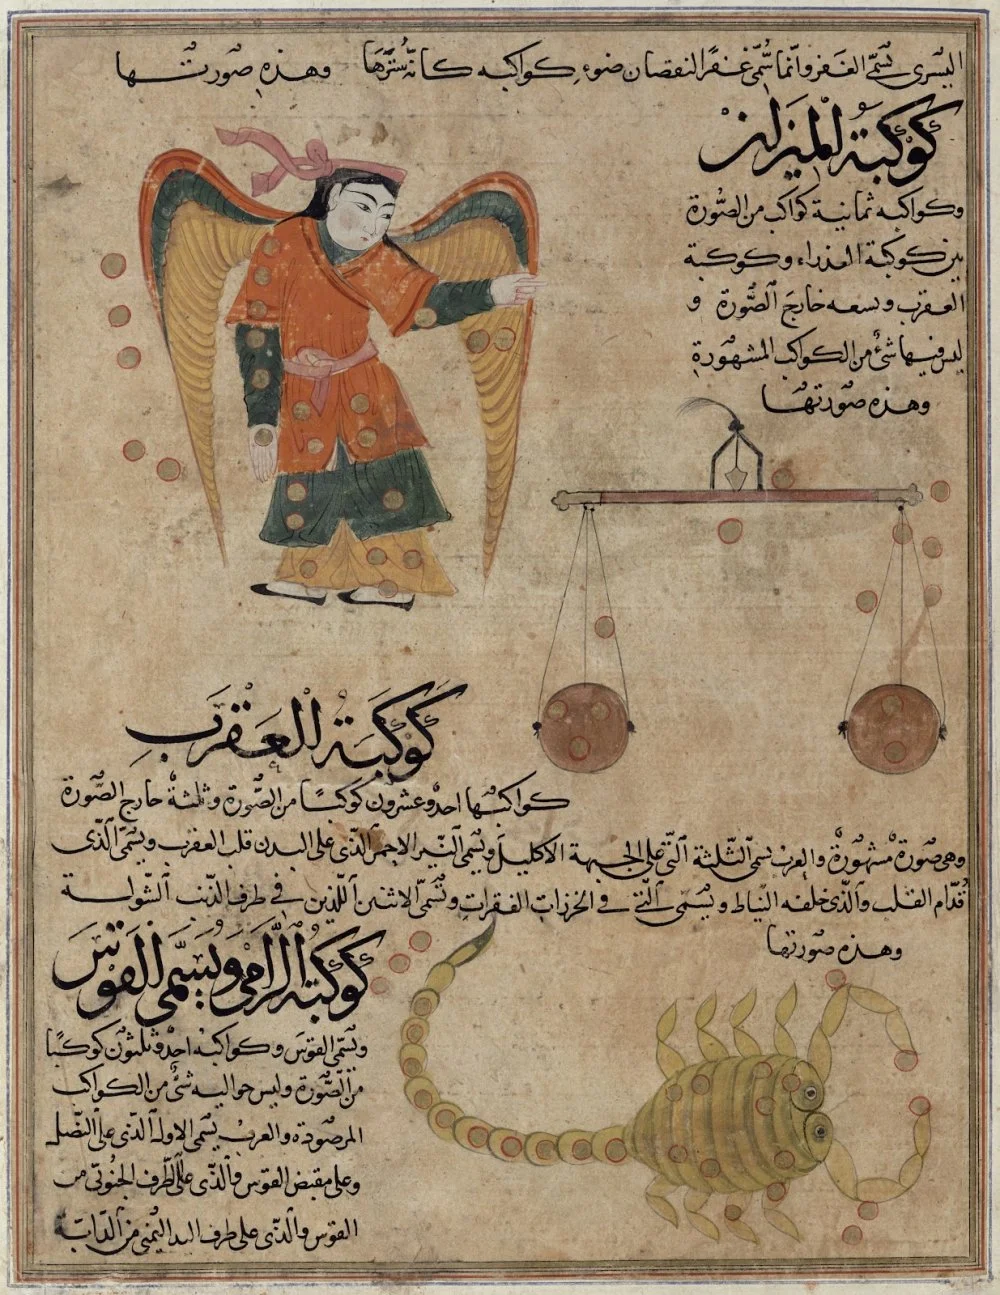 اليسرى تسمى الغفر وانما سمى غفرا لنقصان ضوء كواكبه كانه سترها وهذه صورتها
كوكبة الميزان
وكواكبه ثمانية كواكب من الصورة
بين كوكبة العذراء وكوكبة
العقرب وتسعه خارج الصورة و
ليس فيها شئ من الكواكب المشهورة
وهذه صورتها
كوكبة العقرب
كواكبها احد وعشرون كوكبا من الصورة وثلثة خارج الصورة
وهي صورة مشهورة والعرب يسمى الثلثة التي على الجبهة الاكليل ويسمى النير الاحمر الذى على البدن قلب العقرب ويسمى الذى
قدام القلب والذى خلفه النياط ويسمى التى في الخرزات الفقرات وتسمى الاثنين اللذين في طرف الذنب الشولة
وهذه صورتها
كوكبة الرامي ويسمى القوس
ويسمى القوس وكواكبه احد وثلثون كوكبا
من الصورة وليس حواليه شئ من الكواكب
المرصودة والعرب يسمى الاول الذى على النصل
وعلى مقبض القوس والذى على الطرف الجنوبي من
القوس والذى على طرف اليد اليمنى من الدابة